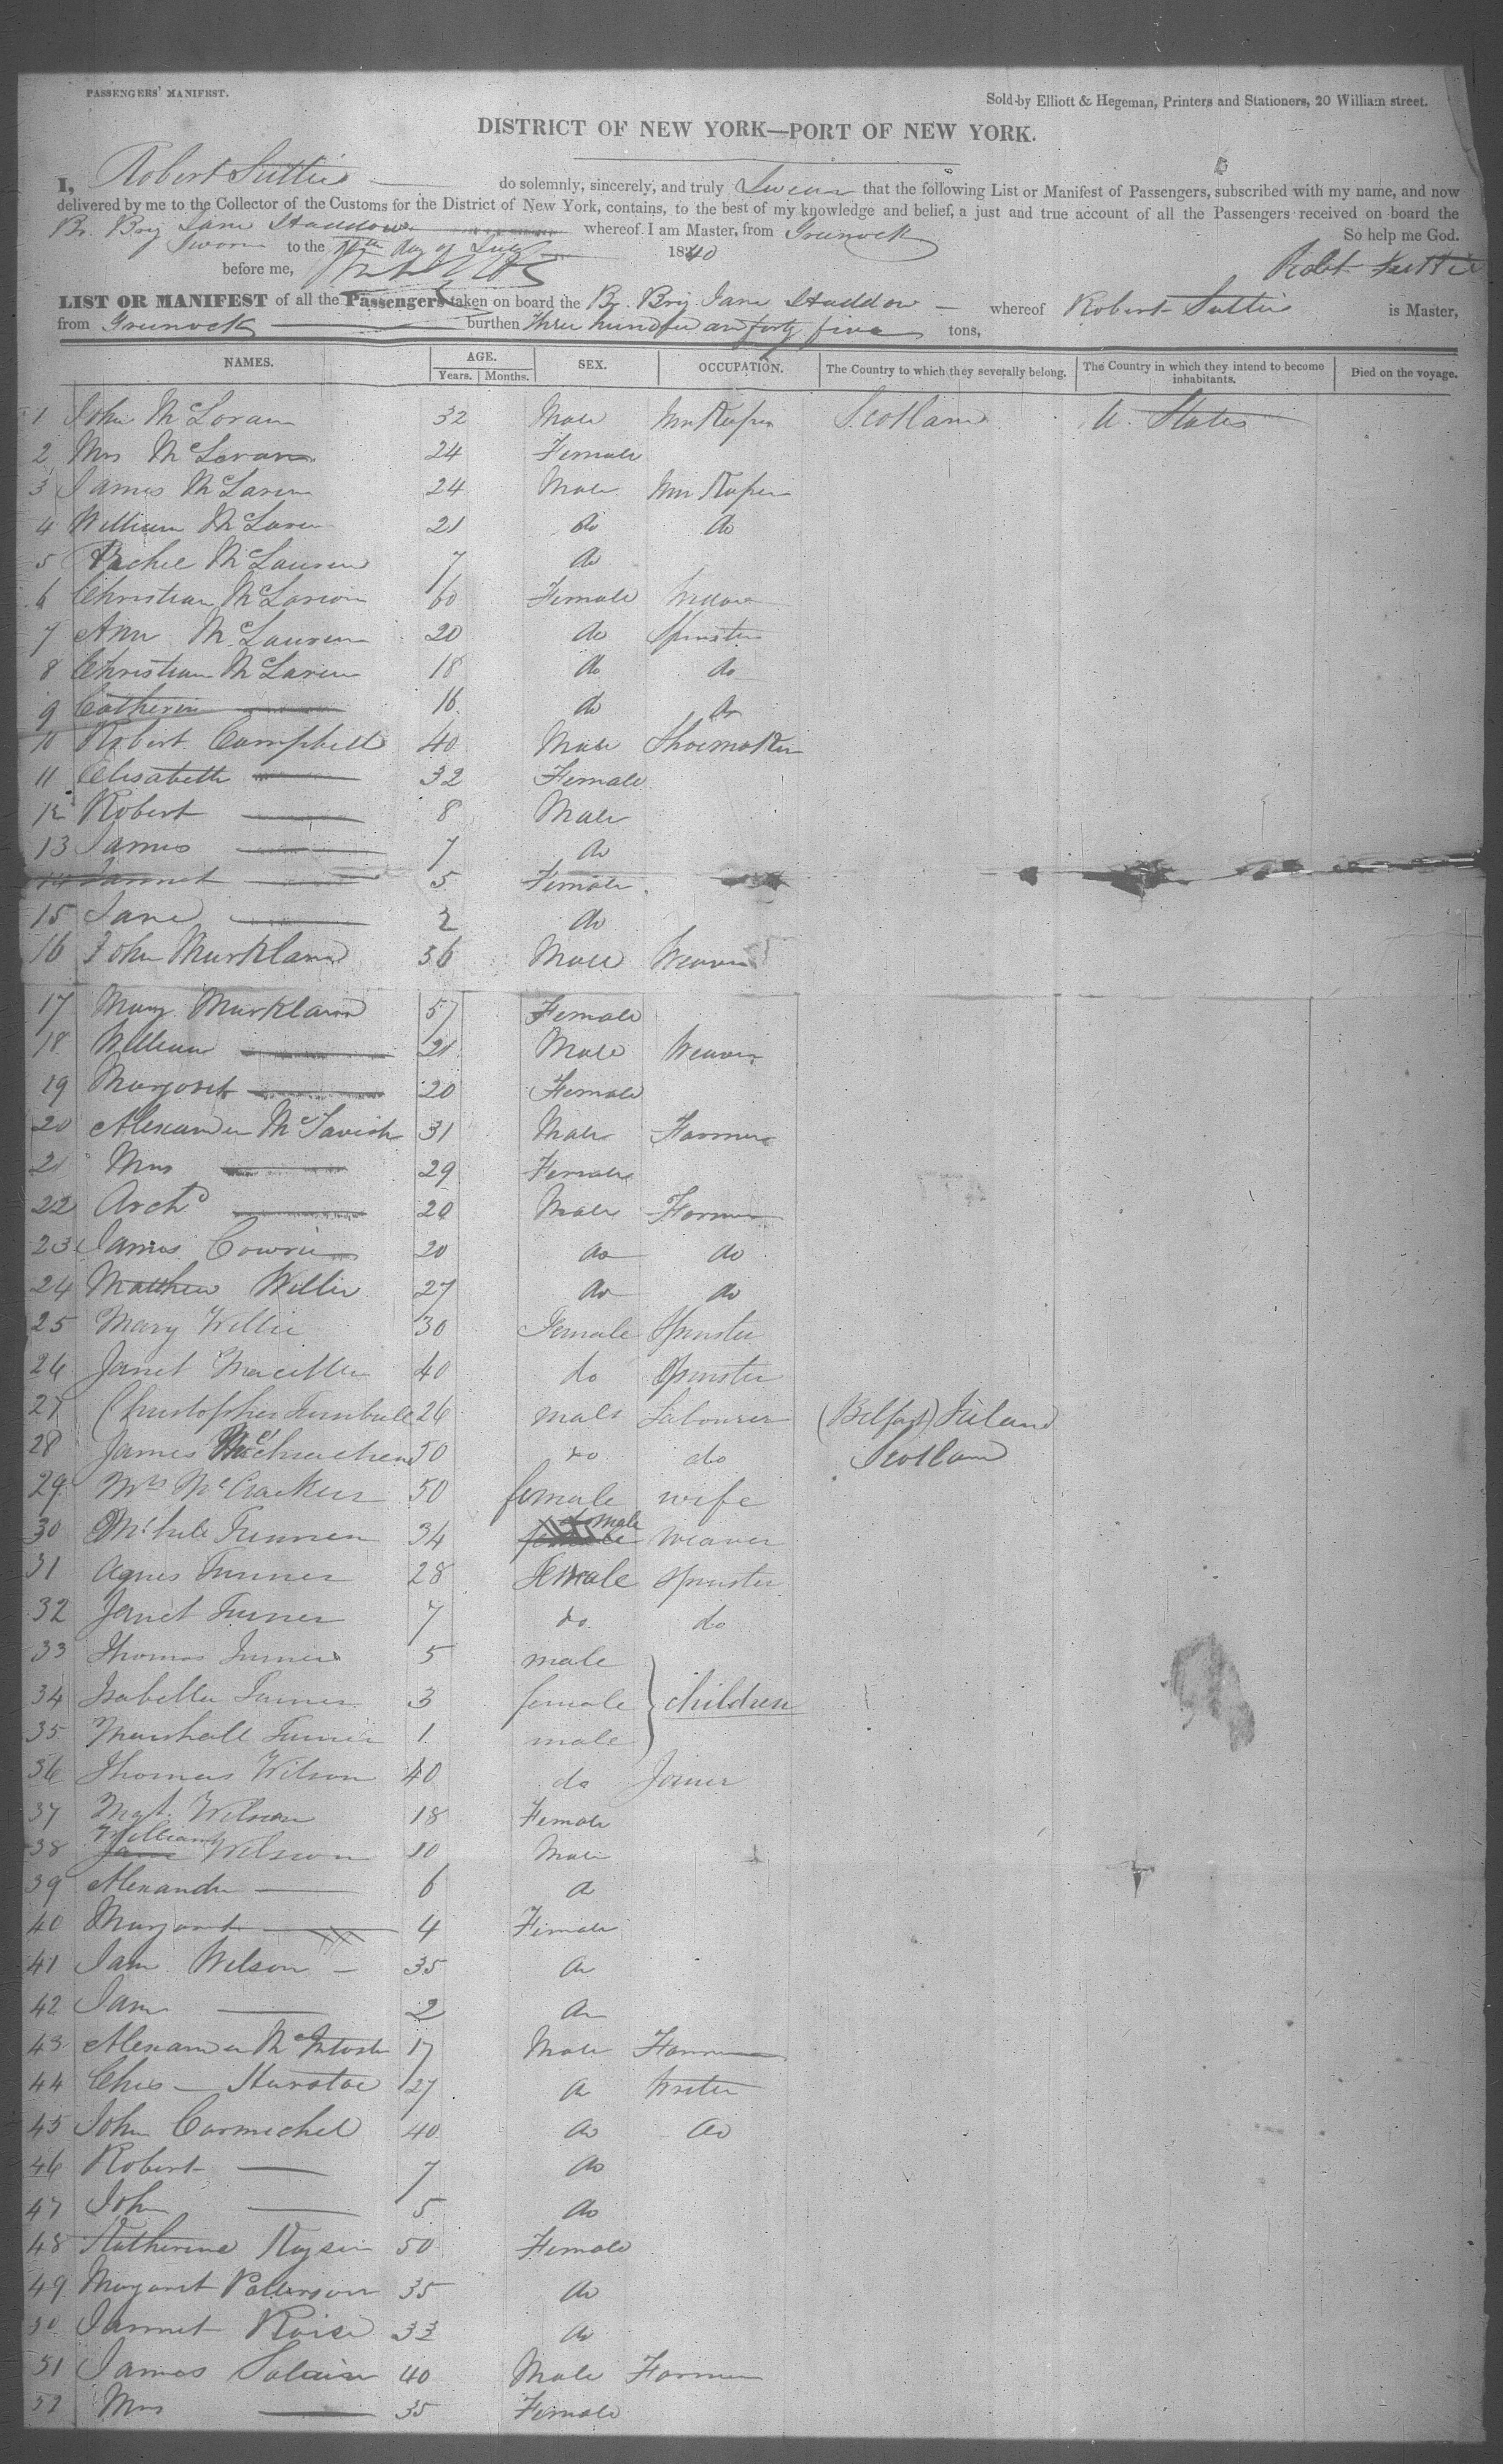 PASSENGERS' MANIFEST.
Sold by Elliott & Hegeman, Printers and Stationers, 20 William street.
DISTRICT OF NEW YORK—PORT OF NEW YORK.
I, Robert Suttie do solemnly, sincerely, and truly Swear that the following List or Manifest of Passengers, subscribed with my name, and now
delivered by me to the Collector of the Customs for the District of New York, contains, to the best of my knowledge and belief, a just and true account of all the Passengers received on board the
Br. Brig Jane Haddow whereof I am Master, from Greenock
So help me God.
Sworn to the day of July 1840
before me,
Robt Suttie
LIST OR MANIFEST of all the Passengers taken on board the Br. Brig Jane Haddow whereof Robert Suttie is Master,
from Greenock burthen Three hundred and forty five tons,
NAMES. AGE. SEX. OCCUPATION. The Country to which they severally belong. The Country in which they intend to become inhabitants. Died on the voyage.
Years. Months.
1 John McLoran 32 Male Scotland U. States
2 Mrs McLoran 24 Female
3 James McLaren 24 Male
4 William McLaren 21 do do
5 McLauren 7 do
6 Christian McLaren 60 Female Widow
7 Ann McLauren 20 do Spinster
8 Christian McLaren 18 do do
9 Catherin — 16 do do
10 Robert Campbell 40 Male Shoemaker
11 Elisabeth — 32 Female
12 Robert — 8 Male
13 James — 7 do
14 Jannet — 5 Female
15 Jane — 2 do
16 John Murkland 36 Male Weaver
17 Mary Murkland 57 Female
18 William — 21 Male Weaver
19 Margaret — 20 Female
20 Alexander McTavish 31 Male Farmer
21 Mrs — 29 Female
22 Archd — 20 Male Farmer
23 James Cowrie 20 do do
24 Matthew Willie 27 do do
25 Mary Willie 30 Female Spinster
26 Janet 40 do Spinster
27 Christopher Turnbull 26 male Labourer (Belfast) Ireland
28 James 50 do do Scotland
29 Mrs McCracken 50 female wife
30 34 male weaver
31 Agnes Turner 28 Female Spinster
32 Janet Turner 7 do do
33 Thomas Turner 5 male
34 Isabella Turner 3 female children
35 Marshall Turner 1 male
36 Thomas Wilson 40 do Joiner
37 Mgt. Wilson 18 Female
38 William Wilson 10 Male
39 Alexander — 6 do
40 Margaret — 4 Female
41 Jane Wilson — 35 do
42 Jane — 2 do
43 Alexander McIntosh 17 Male Farmer
44 27 do Writer
45 John Carmichel 40 do do
46 Robert — 7 do
47 John — 5 do
48 Katherine 50 Female
49 Margaret Patterson 35 do
50 Jannet 33 do
51 James 40 Male Farmer
52 Mrs — 35 Female